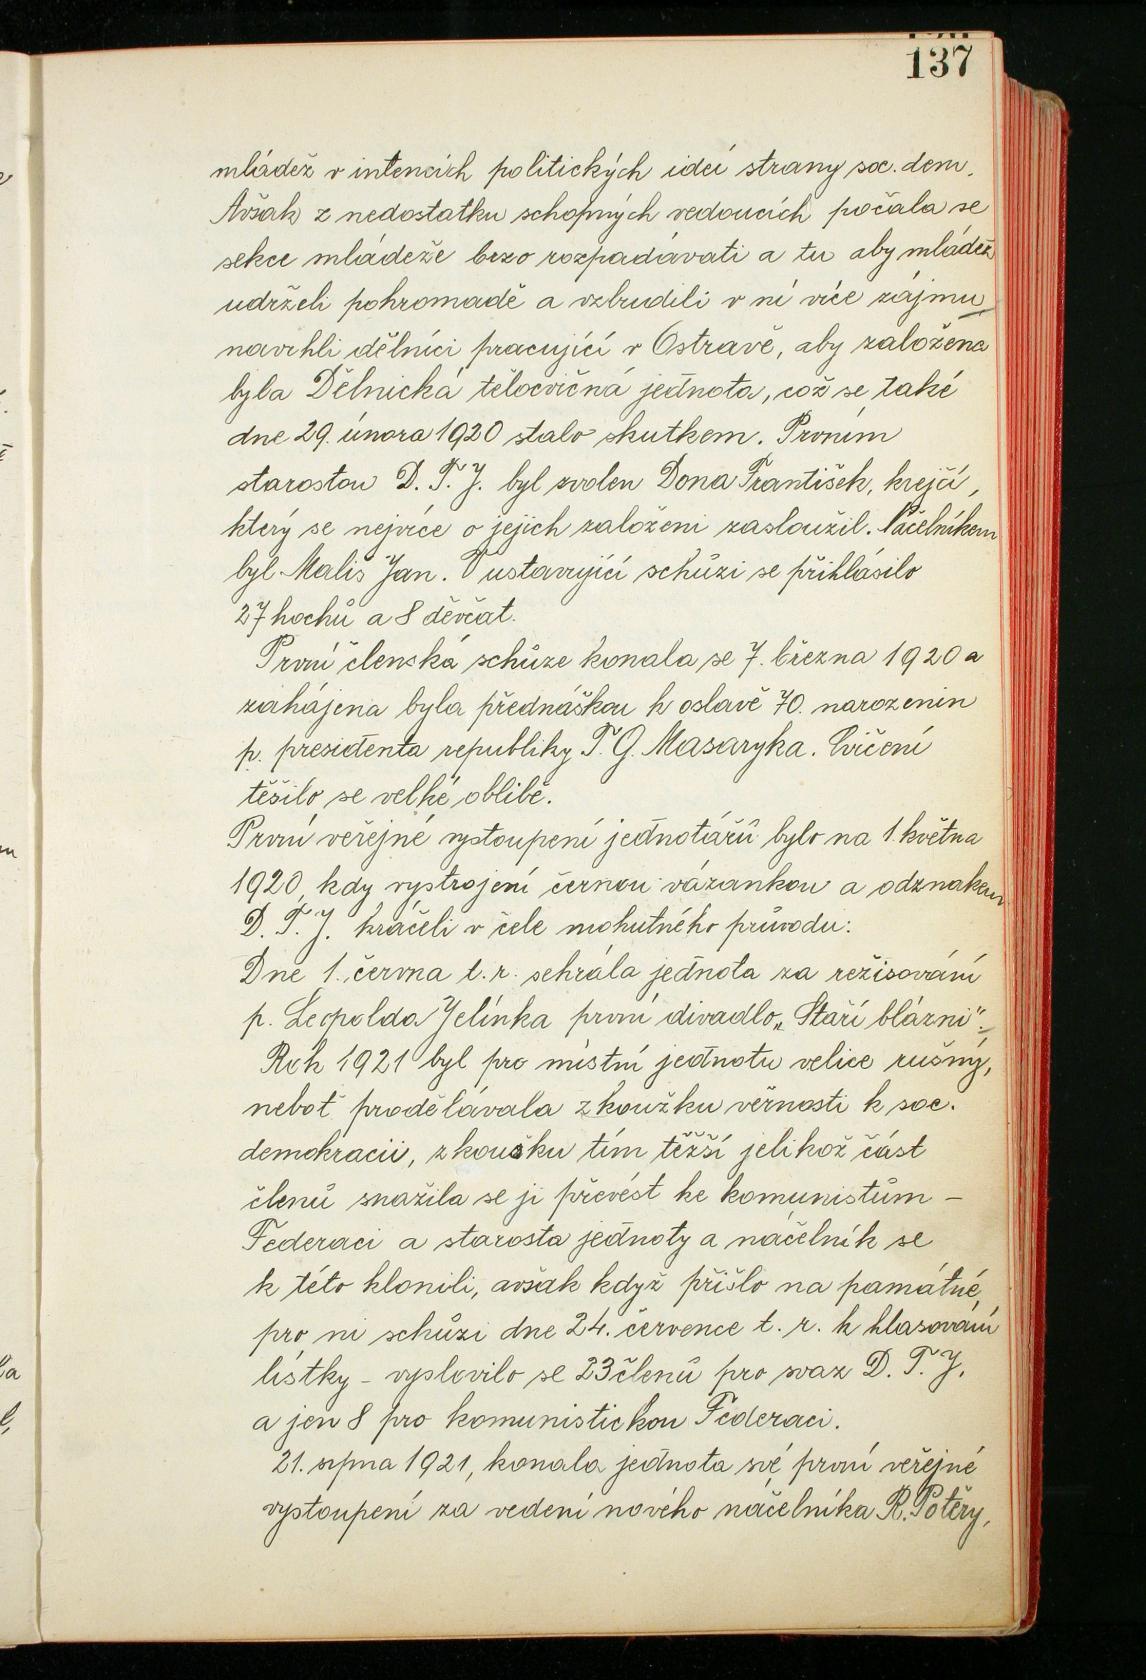 137
mládež v intencích politických ideí strany soc. dem.
Avšak z nedostatku schopných vedoucích počala se
sekce mládeže brzo rozpadávati a tu aby mládež
udrželi pohromadě a vzbudili v ní více zájmu,
navrhli dělníci pracující v Ostravě, aby založena
byla Dělnická tělocvičná jednota, což se také
dne 29. února 1920 stalo skutkem. Prvním
starostou D. T. J. byl zvolen Dona František, krejčí,
který se nejvíce o jejich založeni zasloužil. Náčelníkem
bylAliš Jan. V ustavující schůzi se přihlásilo
27 hochů a 8 děvčat.
První členská schůze konala se 7. března 1920 a
zahájena byla přednáškou k oslavě 70. narozenin
p. presidenta republiky T. G. Masaryka. Cvičení
těšilo se velké oblibě.
První veřejné vystoupení jednotářů bylo na 1. května
1920, kdy vystrojení černou vázankou a odznakem
D. T. J. kráčeli v čele mohutného průvodu:
Dne 1. června t. r. sehrála jednota za režisování
p. Leopolda Jelínka první divadlo „Staří blázni".
Rok 1921 byl pro místní jednotu velice rušný,
neboť prodělávala zkoužku věrnosti k soc.
demokracii, zkoušku tím těžší jelikož část
členů snažila se ji převést ke komunistům –
Federaci a starosta jednoty a náčelník se
k této klonili, avšak když přišlo na památné
pro ni schůzi dne 24. července t. r. k hlasování
lístky – vyslovilo se 23 členů pro svaz D. T. J.
a jen 8 pro komunistickou Federaci.
21. srpna 1921, konala jednota své první veřejné
vystoupení za vedení nového náčelníka R. Potěry,